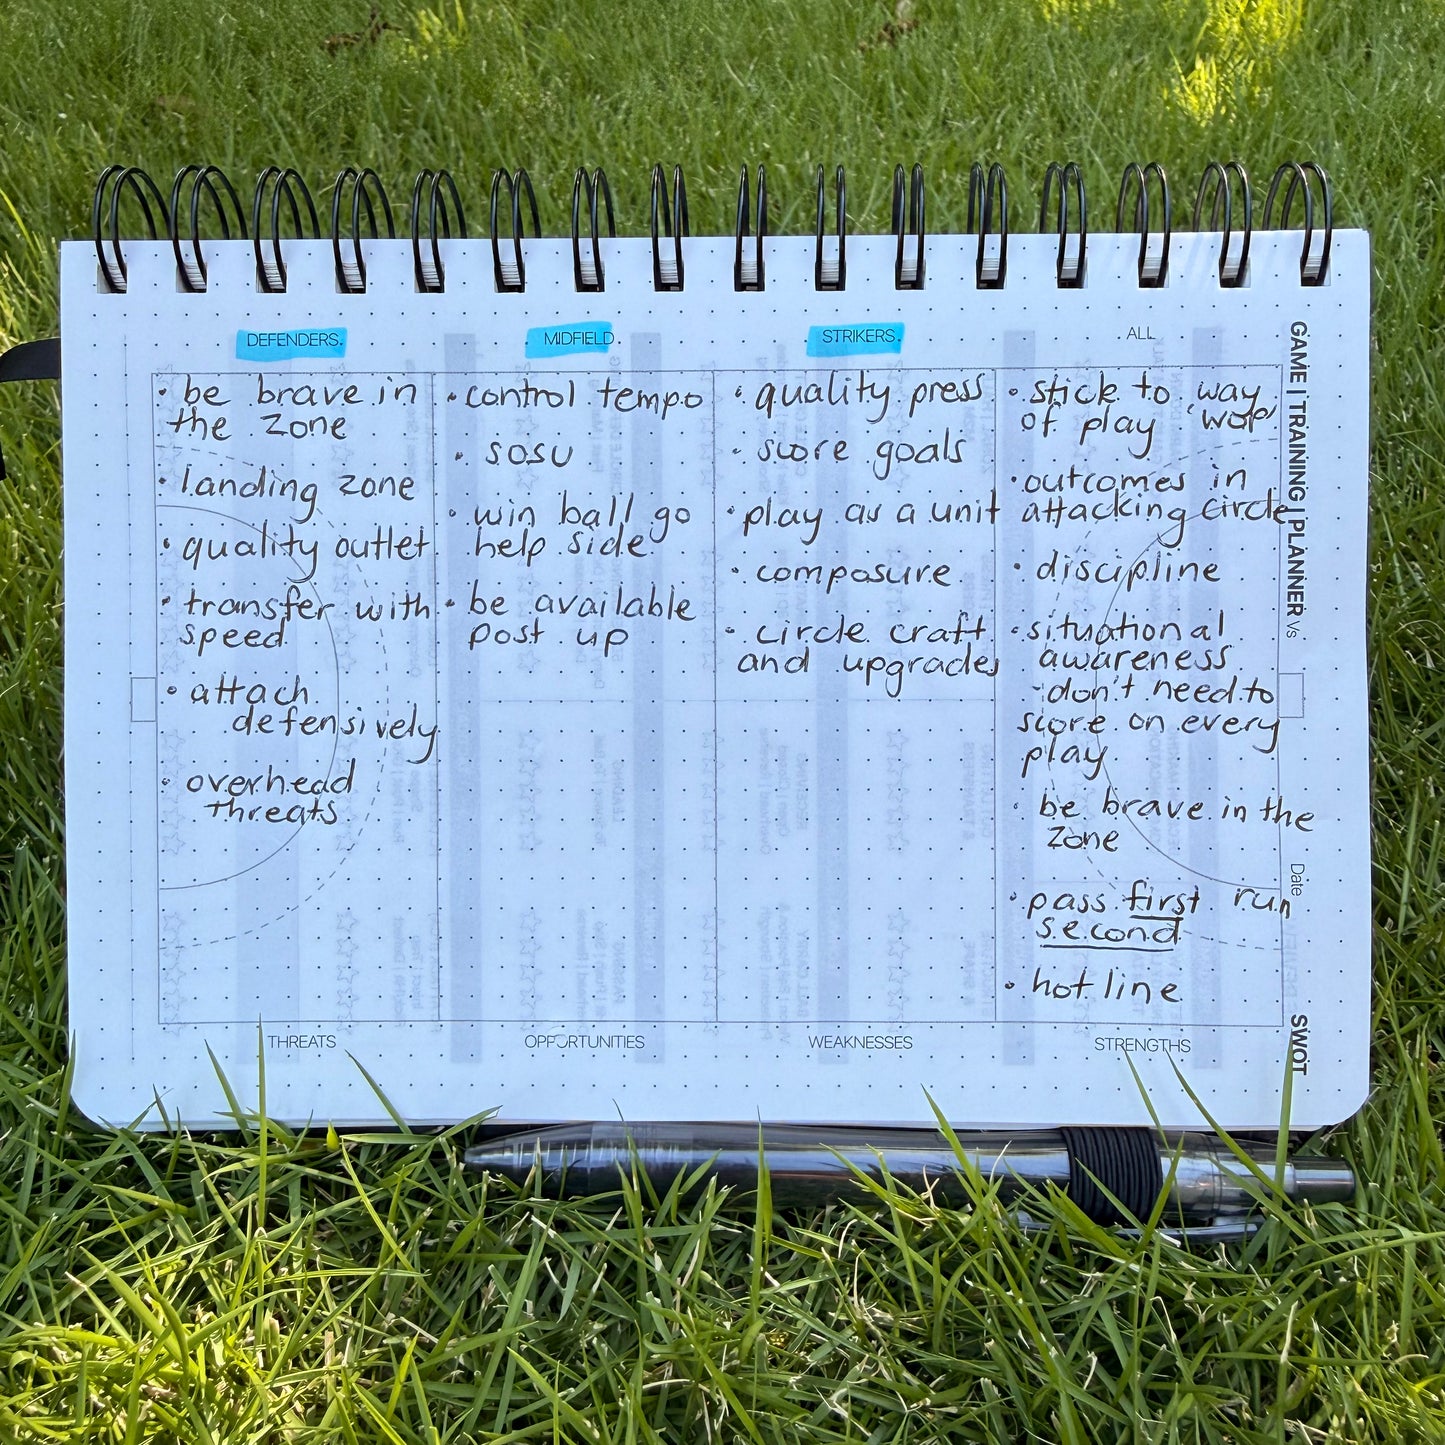 DEFENDERS.
• be brave in
the zone
• landing zone
• quality outlet
• transfer with
speed
• attach
defensively
• overhead
threats
THREATS
MIDFIELD.
• control tempo
• sosu
• win ball go
help side
• be available
post up
OPPORTUNITIES
STRIKERS.
• quality press
• score goals
• play as a unit
• composure
• circle craft
and upgrades
WEAKNESSES
ALL
• stick to way
of play 'wop'
• outcomes in
attacking circle
• discipline
• situational
awareness
- don't need to
score on every
play
• be brave in the
zone
• pass first run
second
• hot line
STRENGTHS
GAME | TRAINING | PLANNER Vs
Date
SWOT